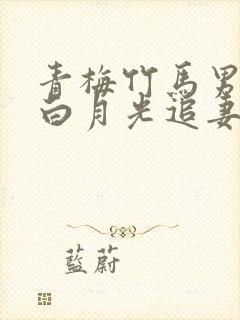 青梅竹馬男
白月光追妻
藍蔚